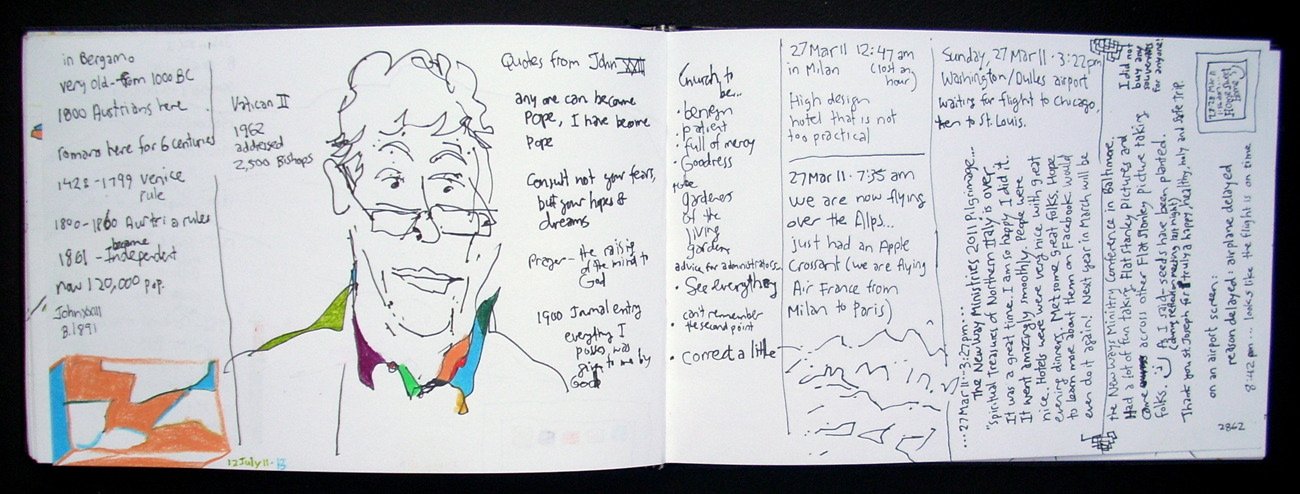 in Bergamo
very old-from 1000 BC
1800 Austrians here
romans here for 6 centuries
1428-1799 Venice
rule
1890-1860 Austria rules
became
1861-Independent
now 120,000 pop.
John XXIII
B.1891
12July11·B
Vatican II
1962
addressed
2,500 Bishops
Quotes from John XXIII
any one can become
Pope, I have become
Pope
Consult not your fears,
but your hopes &
dreams
Prayer-the raising
of the mind to
God
1900 Journal entry
everything I
posses, was
given to me by
God
Church to
be...
· benign
· patient
· full of mercy
· Goodness
to be
gardeners
of the
living
gardens
advice for administrators...
· See everything
· can't remember
the second point
· Correct a little
27 Mar 11 12:47am
in Milan (lost an
hour)
High design
hotel that is not
too practical
27 Mar 11 · 7:35 am
we are now flying
over the Alps...
just had an Apple
Crossant (we are flying
Air France from
Milan to Paris)
Sunday, 27 Mar 11 · 3:22pm
Washington/Dulles airport
waiting for flight to Chicago,
then to St. Louis.
...27 Mar 11 · 3:27pm...
The New Ways Ministries 2011 Pilgrimage...
"Spiritual Treasures of Northern Italy is over.
It was a great time. I am so happy I did it.
It went amazingly smoothly. People were
nice. Hotels were were very nice with great
evening dinners. Met some great folks. Hope
to learn more about them on Facebook. Would
even do it again! Next year in March will be
the New Ways Ministry Conference in Baltimore.
Had a lot of fun taking Flat Stanley Pictures and
came across other Flat Stanley picture taking
folks. As I said-seeds have been planted.
(during reflection meeting last night)
Thank you St. Joseph for a truly a happy, healthy, holy and safe trip.
I did not
buy any
souvenirs
for anyone!
on an airport screen:
reason delayed: airplane delayed
8:42 pm... looks like the flight is on time
2862